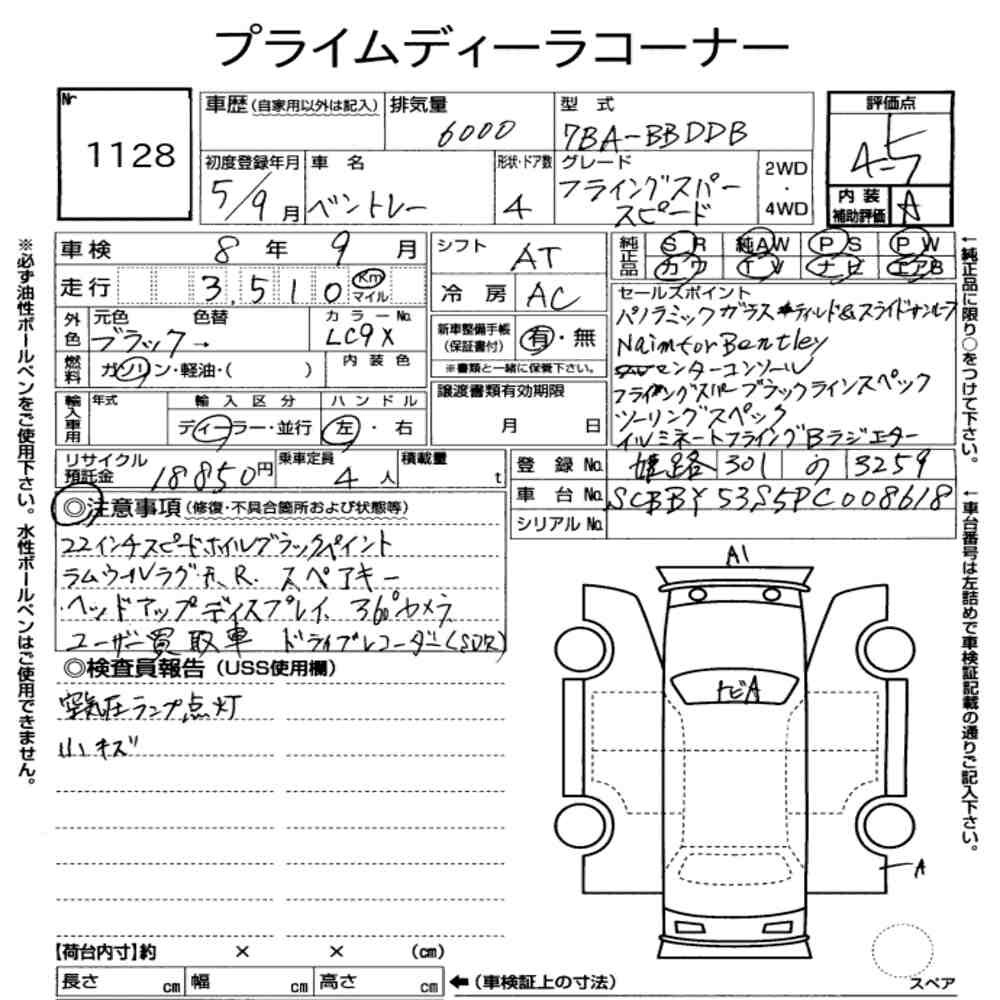 プライムディーラコーナー
Nr
1128
車歴(自家用以外は記入)
排気量
6000
型 式
7BA-BBDDB
初度登録年月
5/9月
車 名
ベントレー
形状・ドア数
4
グレード
フライングスパー
スピード
2WD
・
4WD
評価点
4.5
内装
補助評価
A
車検 8年 9月
走行 3,510 Km
マイル
外色
元色
ブラック→
色替
カラーNo.
LC9X
燃料
ガソリン・軽油・( )
内装色
輸入車用
年式
輸入区分
ディーラー・並行
ハンドル
左・右
シフト
AT
冷房
AC
新車整備手帳
(保証書付)
有・無
※書類と一緒に保管下さい。
譲渡書類有効期限
月 日
純正品
SR 純AW PS PW
カワ TV ナビ エアB
セールスポイント
パノラミックガラス チルド&スライドサンルーフ
Naim for Bentley
センターコンソール
フライングスパーブラックラインスペック
ツーリングスペック
イルミネートフライングBラジエター
リサイクル
預託金
18850円
乗車定員
4人
積載量
t
登録No. 姫路 301 の 3259
車台No. SCBBY53S5PC008618
シリアルNo.
◎注意事項(修復・不具合箇所および状態等)
22インチスピードホイルブラックペイント
ラムウールラグF,R. スペアキー
ヘッドアップディスプレイ、360°カメラ
ユーザー買取車 ドライブレコーダー(SDR)
◎検査員報告(USS使用欄)
空気圧ランプ点灯
小キズ
A1
トビA
A
スペア
【荷台内寸】約 × × (cm)
長さ cm 幅 cm 高さ cm
←(車検証上の寸法)
※必ず油性ボールペンをご使用下さい。水性ボールペンはご使用できません。
←純正品に限り○をつけて下さい。
←車台番号は左詰めで車検証記載の通りご記入下さい。